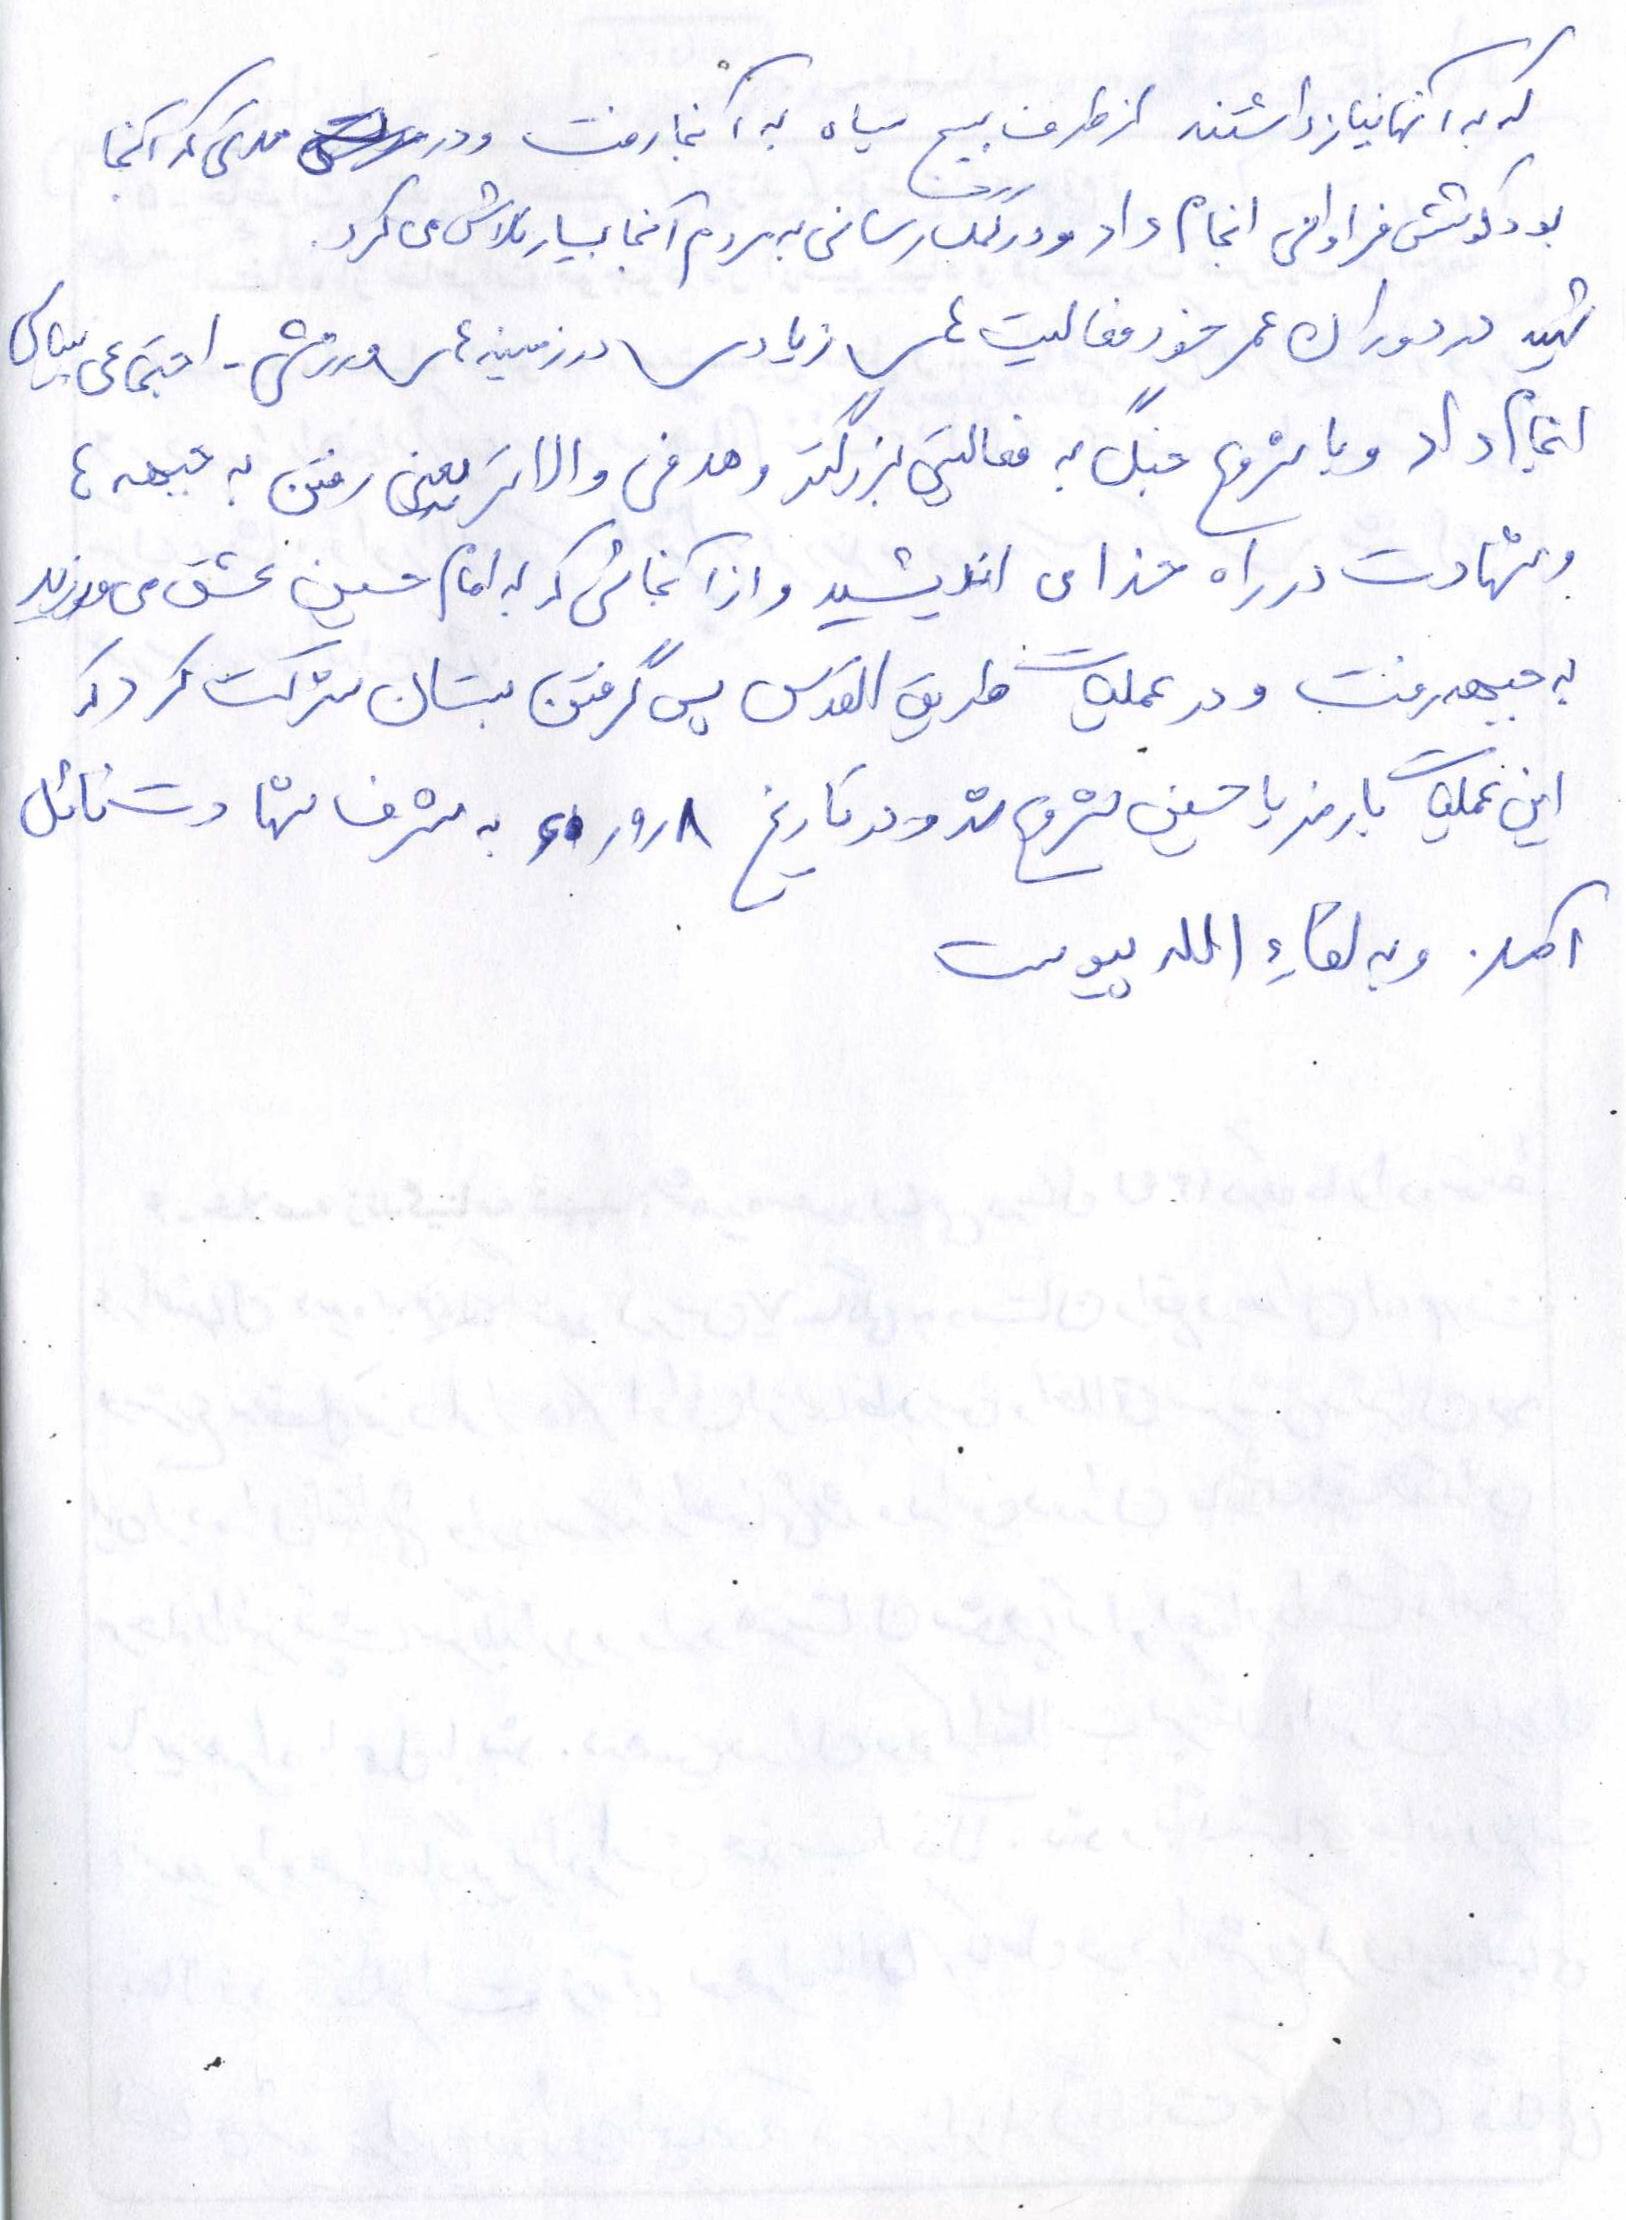 که به آنها نیاز داشتند از طرف بسیج سپاه به آنجا رفت و در مدتی که آنجا
بود کوشش فراوانی انجام داد و در کمک رسانی به مردم آنجا بسیار تلاش می کرد.
شهید در دوران عمر خود فعالیت های زیادی در زمینه های ورزشی - اجتماعی سیاسی
انجام داد و با شروع جنگ به فعالیتی بزرگتر و هدفی والاتر یعنی رفتن به جبهه ها
و شهادت در راه خدا می اندیشید و از آنجائی که به امام حسین عشق می ورزید
به جبهه رفت و در عملیات طریق القدس پس گرفتن بستان شرکت کرد که
این عملیات با رمز یا حسین شروع شد و در تاریخ ۸ر۹ر۶۰ به شرف شهادت نائل
آمد. و به لقاء الله پیوست